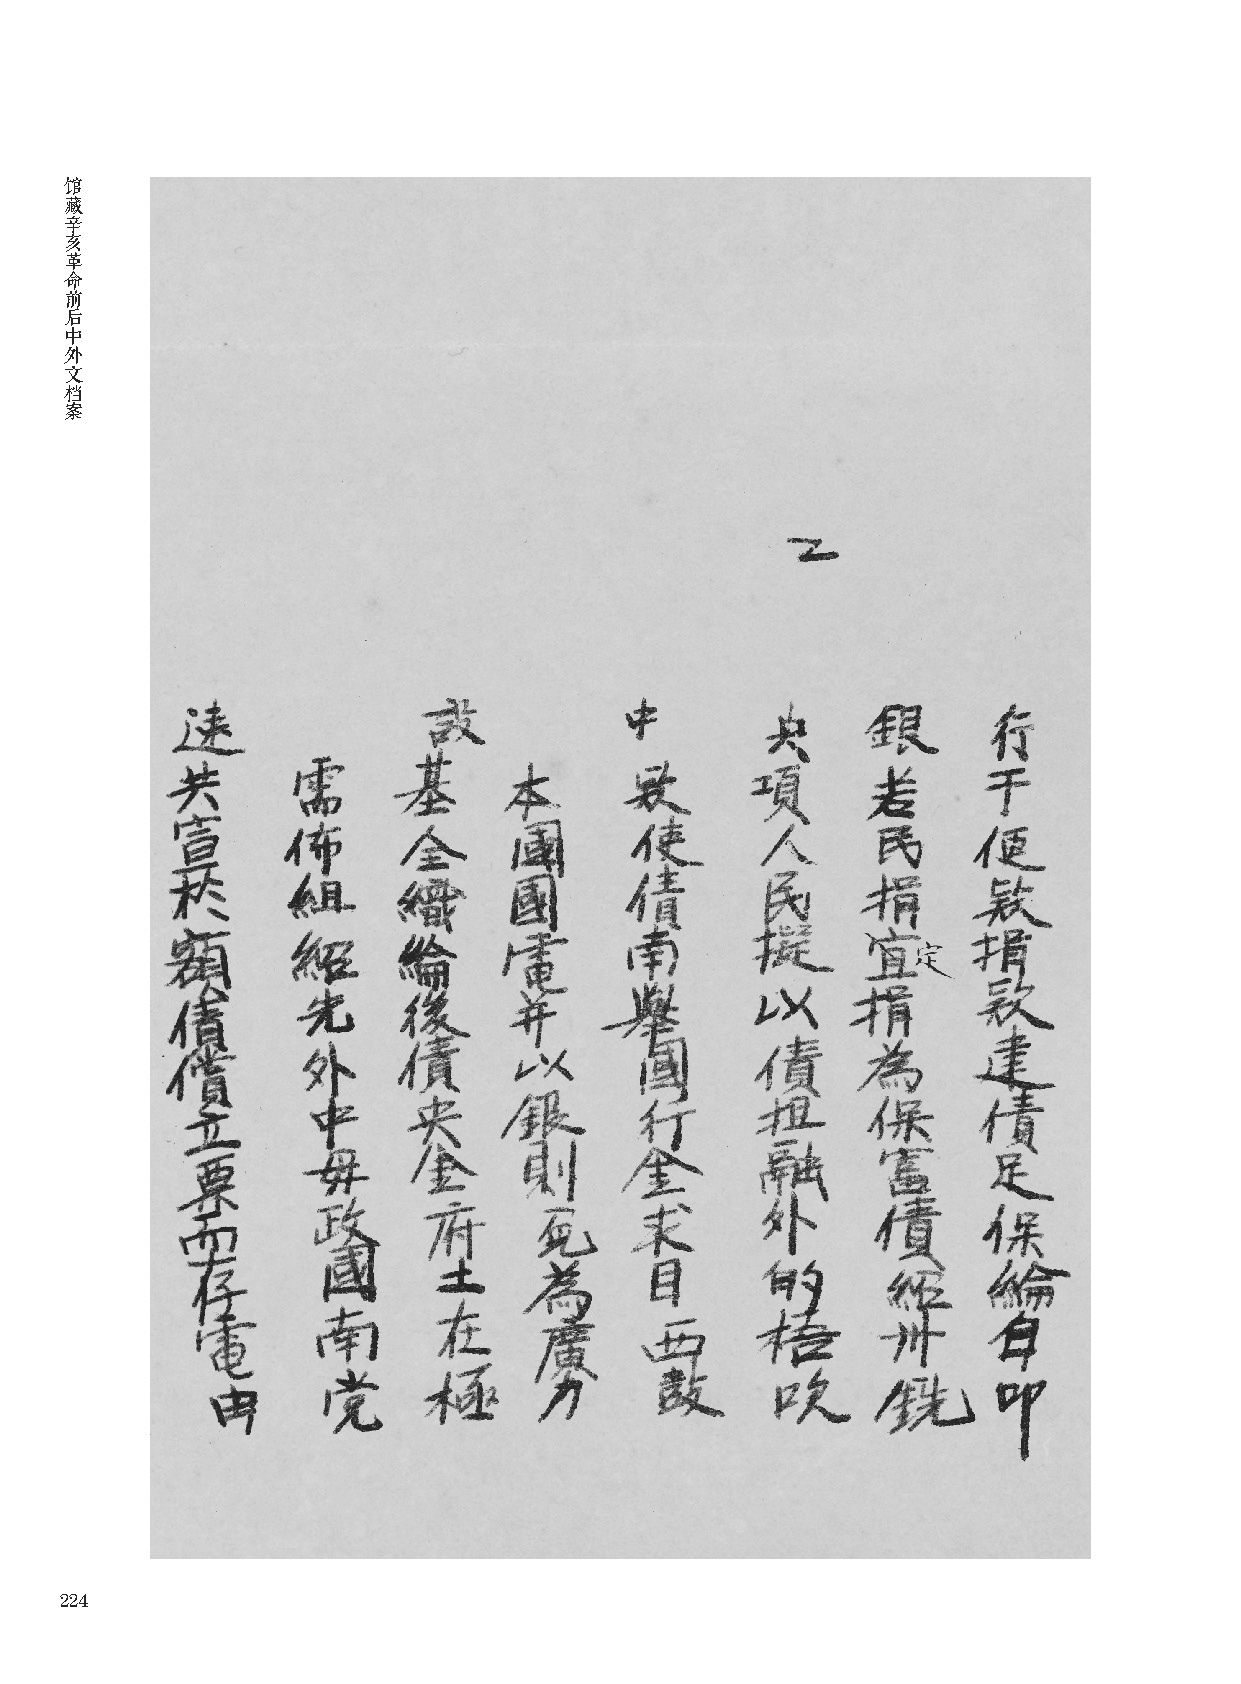 行干便欵捐欵建債足保綸自叩
銀者民捐宜定捐為保富債經卅銑
乙
央項人民擬以債担融外的梧吹
中欵使債南舉國行金求目西鼓
本國國電并以銀則死為廣力
設基全織綸後債央金府土在極
需佈組紹先外中毋政國南党
速共宣於額債償立票而存電由
馆藏辛亥革命前后中外文档案
224